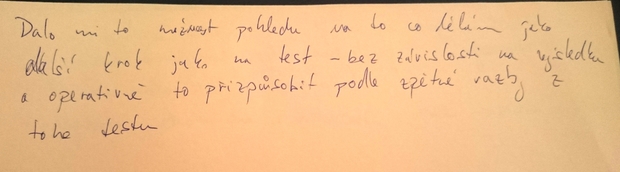 Dalo mi to možnost pohledu na to co dělám jako
další krok jako na test - bez závislosti na výsledku
a operativně to přizpůsobit podle zpětné vazby z
toho testu